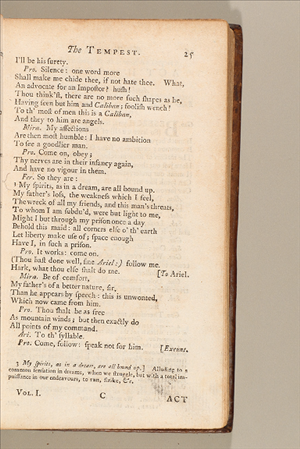 The TEMPEST. 25
I'll be his surety.
Pro. Silence: one word more
Shall make me chide thee, if not hate thee. What,
An advocate for an Impostor? hush!
Thou think'st, there are no more such shapes as he,
Having seen but him and Caliban; foolish wench!
To th' most of men this is a Caliban,
And they to him are angels.
Mira. My affections
Are then most humble: I have no ambition
To see a goodlier man.
Pro. Come on, obey;
Thy nerves are in their infancy again,
And have no vigour in them.
Fer. So they are:
3 My spirits, as in a dream, are all bound up.
My father's loss, the weakness which I feel,
The wreck of all my friends, and this man's threats,
To whom I am subdu'd, were but light to me,
Might I but through my prison once a day
Behold this maid: all corners else o' th' earth
Let liberty make use of; space enough
Have I, in such a prison.
Pro. It works: come on.
(Thou hast done well, fine Ariel:) follow me.
Hark, what thou else shalt do me. [To Ariel.
Mira. Be of comfort,
My father's of a better nature, sir,
Than he appears by speech: this is unwonted,
Which now came from him.
Pro. Thou shalt be as free
As mountain winds; but then exactly do
All points of my command.
Ari. To th' syllable.
Pro. Come, follow: speak not for him. [Exeunt.
3 My spirits, as in a dream, are all bound up.] Alluding to a
common sensation in dreams, when we struggle, but with a total im-
puissance in our endeavours, to run, strike, &c.
VOL. I. C ACT